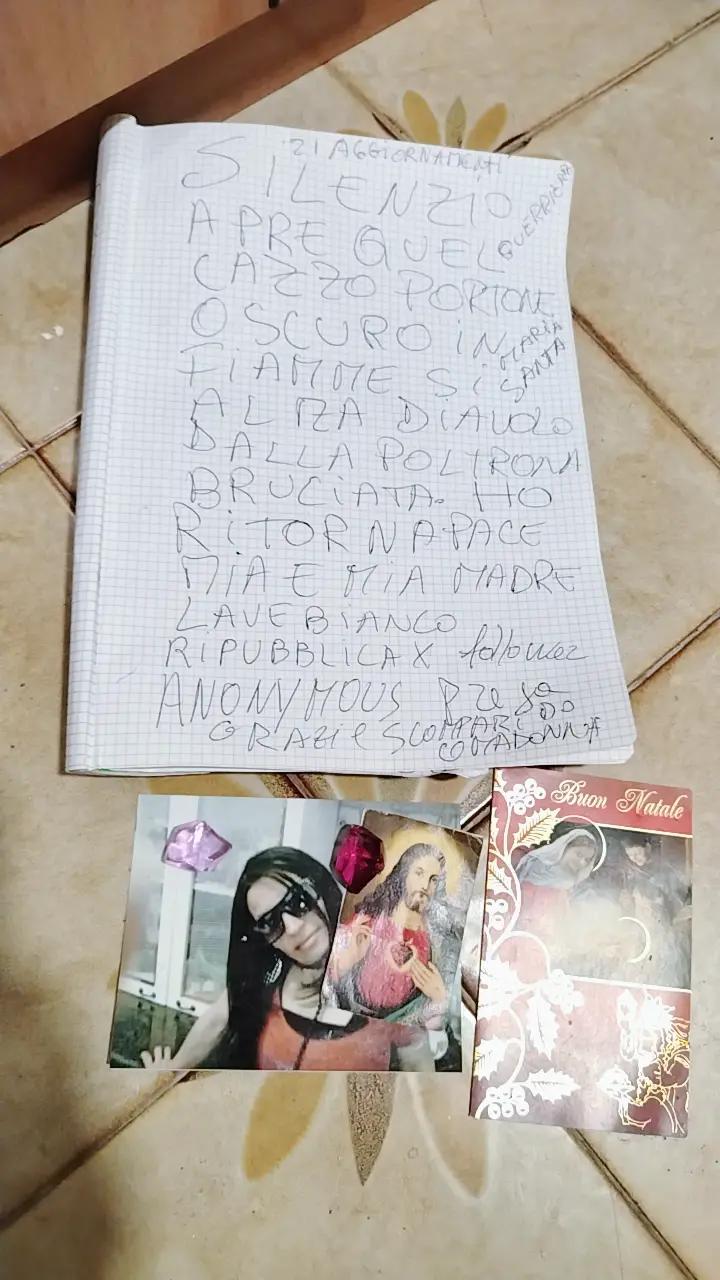 21 AGGIORNAMENTI
SILENZIO
GUERRIERA
APRE QUEL
CAZZO PORTONE
OSCURO iN
MARIA
SANTA
FiAMME Si
ALZA DiAVOLO
DALLA POLTRONA
BRUCiATA. HO
RiTORNA PACE
MiA E MiA MADRE
LAVE BiANCO
RiPUBBLiCA X follower
ANONYMOUS
GRAZiE SCOMPARi
CO MADONNA
Buon Natale